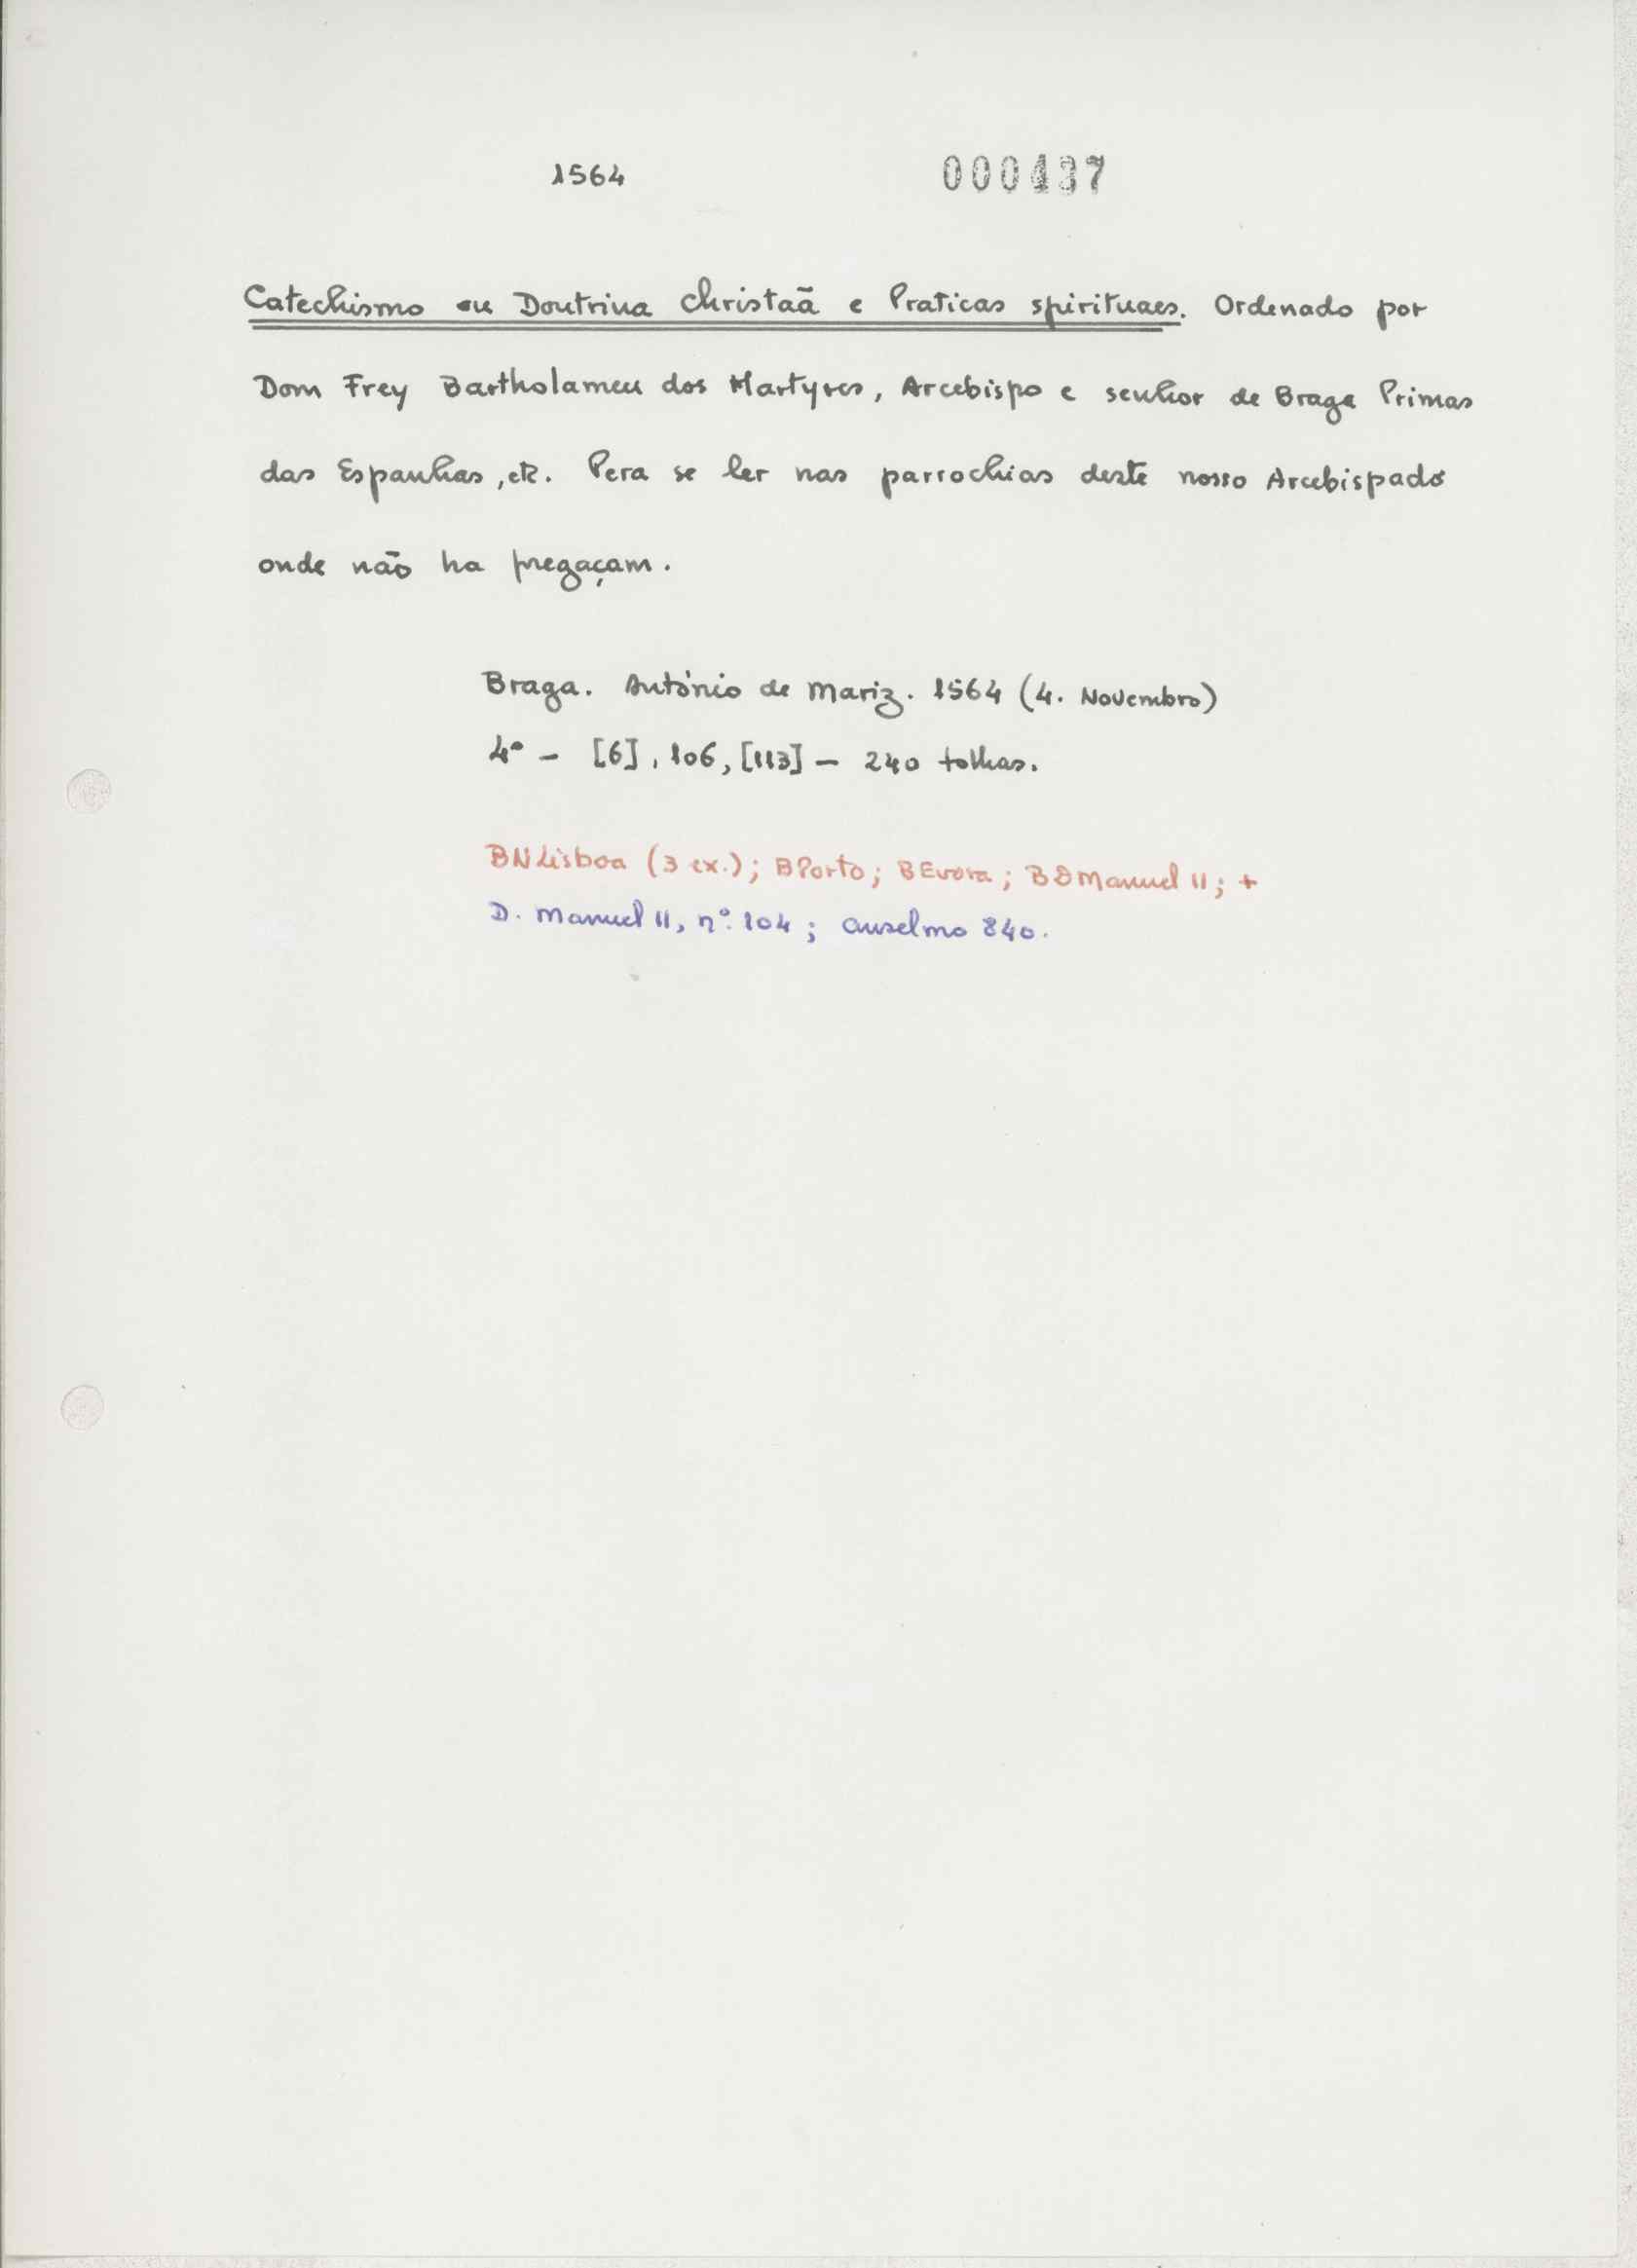 1564 000437
Catechismo ou Doutrina Christaã e Praticas spirituaes. Ordenado por
Dom Frey Bartholameu dos Martyres, Arcebispo e senhor de Braga Primas
das Espanhas, etc. Pera se ler nas parrochias deste nosso Arcebispado
onde não ha pregaçam.
Braga. António de Mariz. 1564 (4. Novembro)
4º – [6], 106, [113] – 240 folhas.
BNLisboa (3 ex.); BPorto; BEvora; BDManuel II; +
D. Manuel II, nº. 104; Anselmo 840.